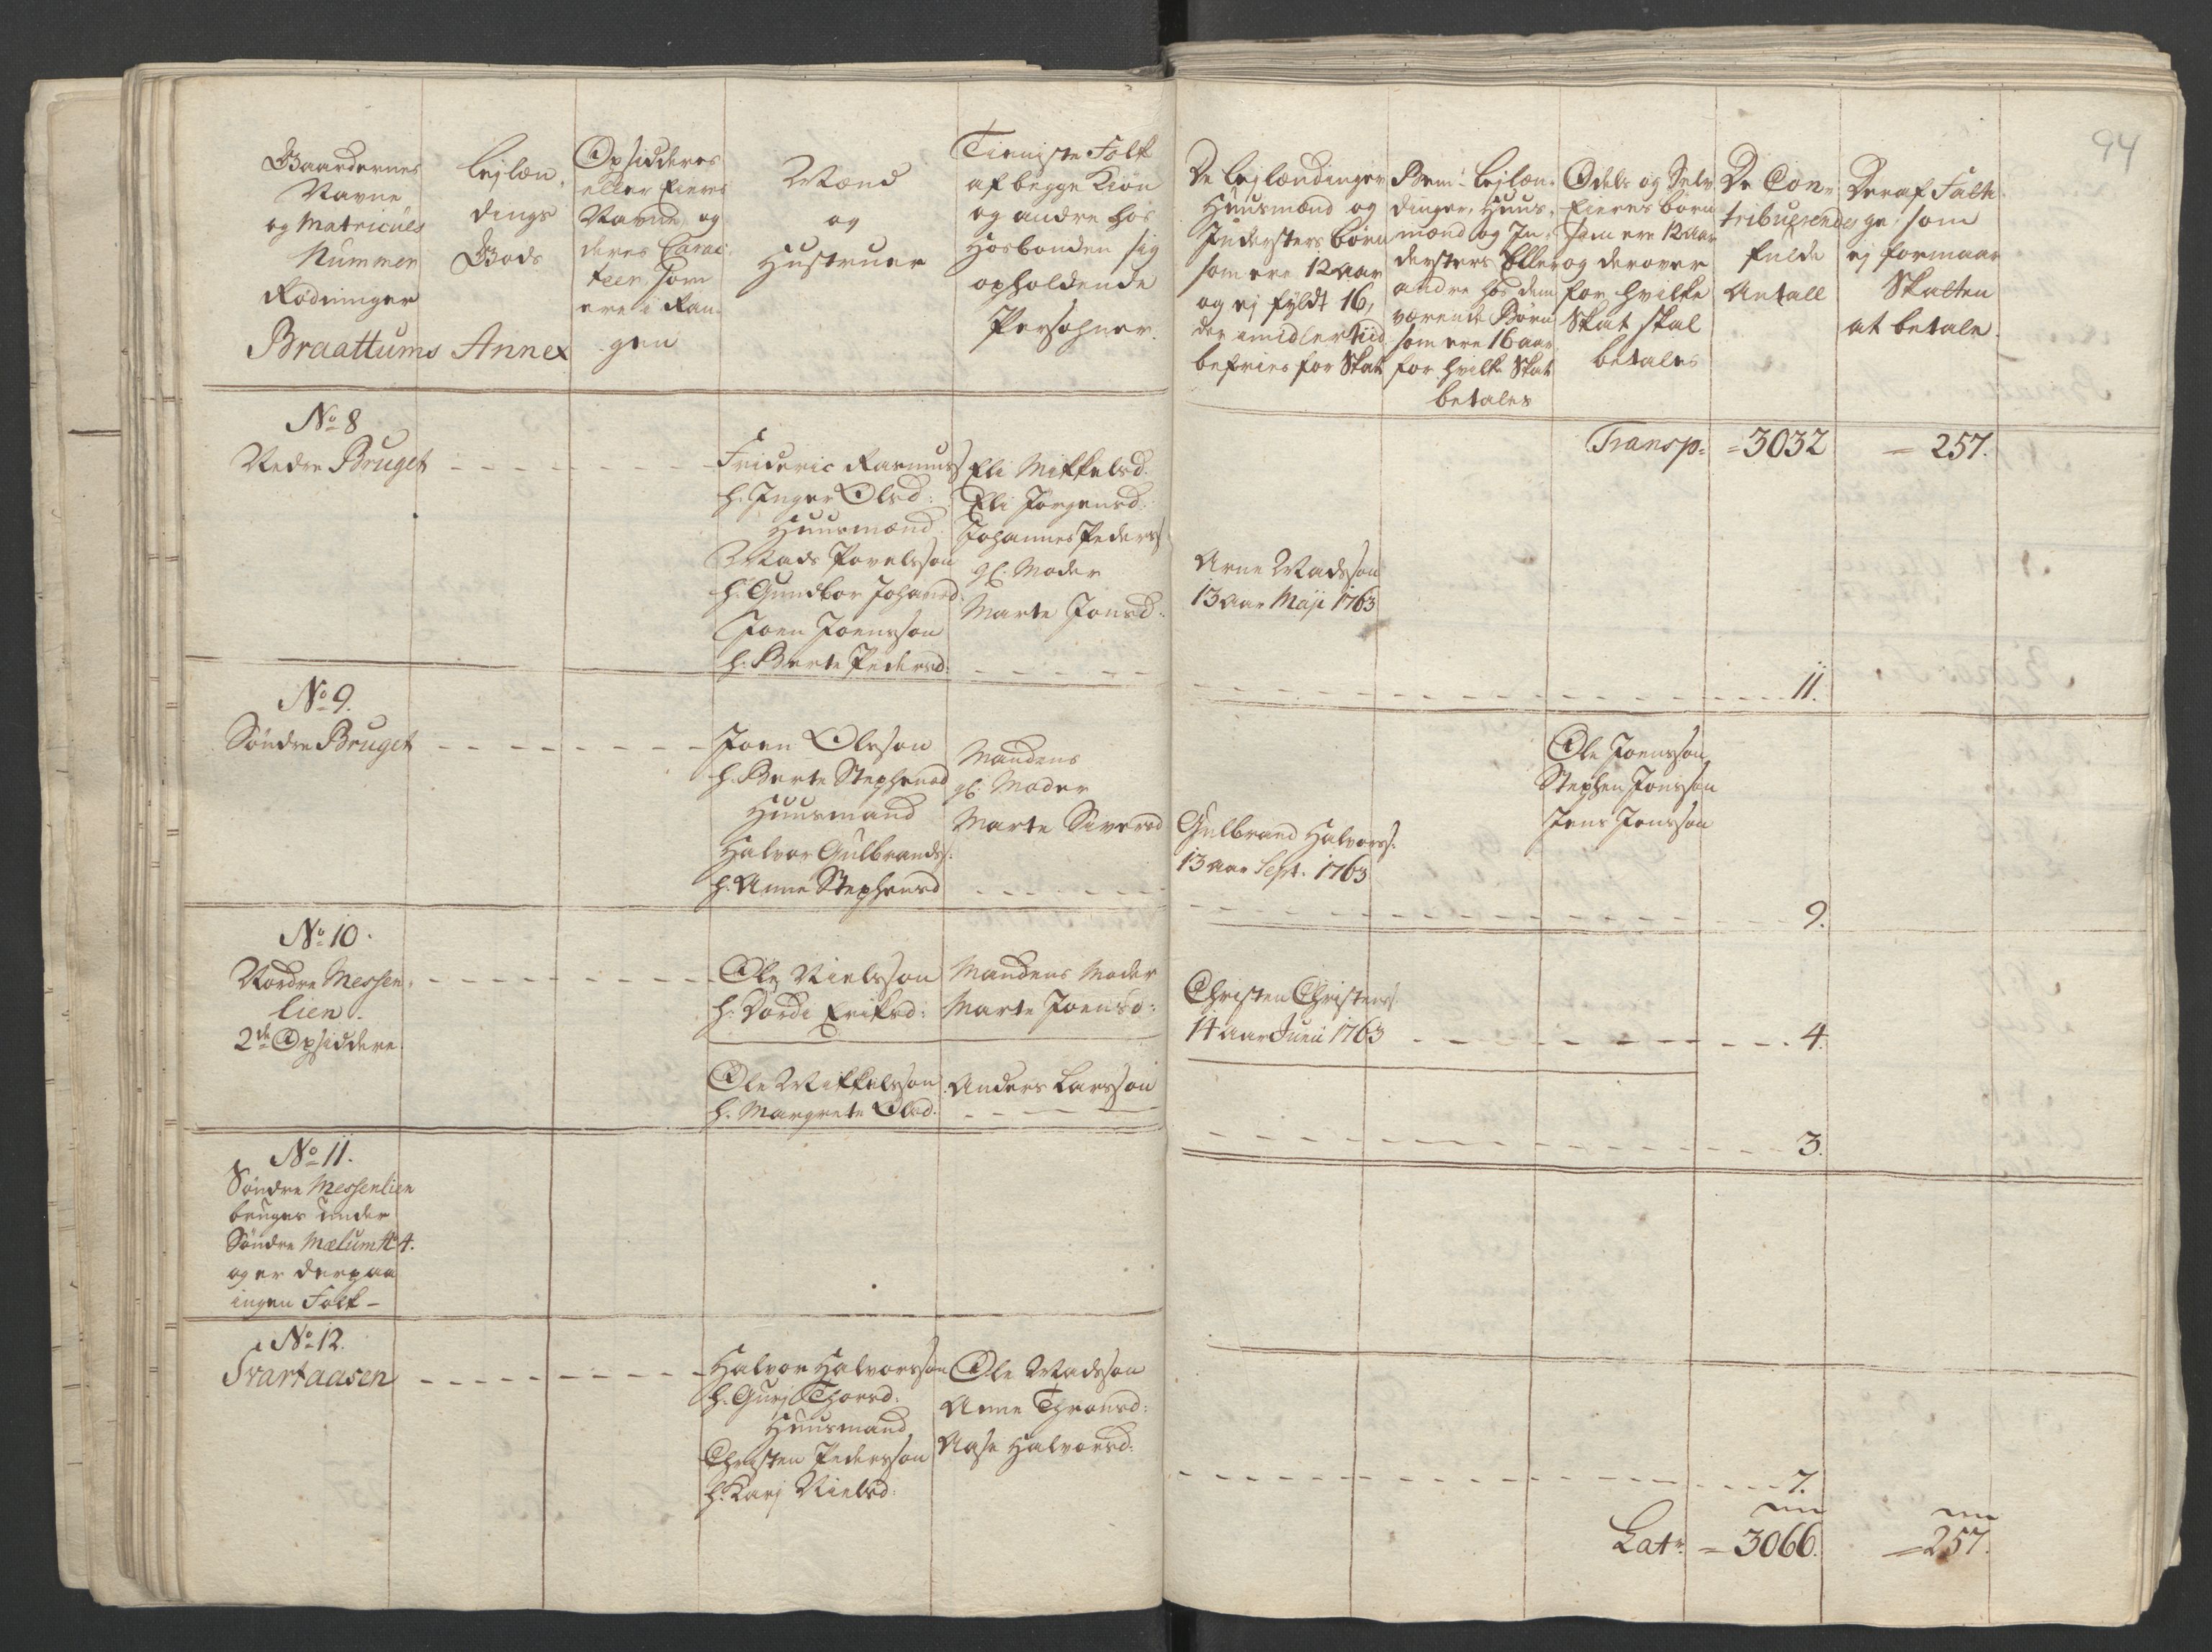 94
Gaardernes
Navne
og Matricüls
Nummer
Rødninger
Braattums Annex
Lejlæn-
dings
Gods
Opsiddernes
eller Eiernes
Navne og
deres Carac-
teer som
ere i Ran-
gen
Mænd
og
Hustruer
Tieniste Folk
af begge Kiøn
og andre hos
Hosbonden sig
opholdende
Persohner
De Lejlændinger
Huusmænd og
Indersters børn
som ere 12 aar
og ej fyldt 16,
der imidlertiid
befries for Skat
Bem: Lejlæn-
dinger, Huus-
mænd og In-
dersters Eller
andre hos dem
værende Børn
som ere 16 aar
for hvilke Skat
betales
Odels og Selv
Eieres børn
som ere 12 aar
og derover
for hvilke
Skat skal
betales
De Con-
tribuerendes
fulde
Antall
Deraf Fatti-
ge, som
ej formaar
Skatten
at betale.
Transp: = 3032 = 257.
No 8
Nedre Bruget
Frideric Rasmuss
h. Inger Olsd:
Huusmænd
Mads Povelsson
h. Gundbor Johansd
Joen Joensson
h. Berte Pedersd:
Eli Mikkelsd.
Eli Jørgensd:
Johannes Peders
gl. Moder
Marte Jonsd:
Arne Madsson
13 aar Maji 1763
11.
No 9.
Søndre Bruget
Joen Olesson
h. Berte Stephensd
Huusmand
Halvor Gulbrands:
h. Anne Stephensd
Mandens
gl: Moder
Marte Siversd
Gulbrand Halvors:
13 aar Sept. 1763
Ole Joensson
Stephen Jonsson
Jens Jensson
9.
No 10.
Nordre Messen-
lien.
2de Opsiddere
Ole Nielsson
h. Dordi Eriksd:
Mandens Moder
Marte Joensd:
Christen Christens:
14 aar Junii 1763
4.
Ole Mikkelsson
h. Margrete Olsd.
Anders Larsson
3.
No 11.
Søndre Messenlien
bruges under
Søndre Mælum No 4.
og er derpaa
ingen Folk -
No 12.
Svartaasen
Halvor Halvorsson
h. Gurj Thorsd:
Huusmand
Christen Pedersson
h. Karj Nielsd:
Ole Madsson
Anne Thronsd:
Aase Halvorsd:
7.
Latr = 3066. = 257.